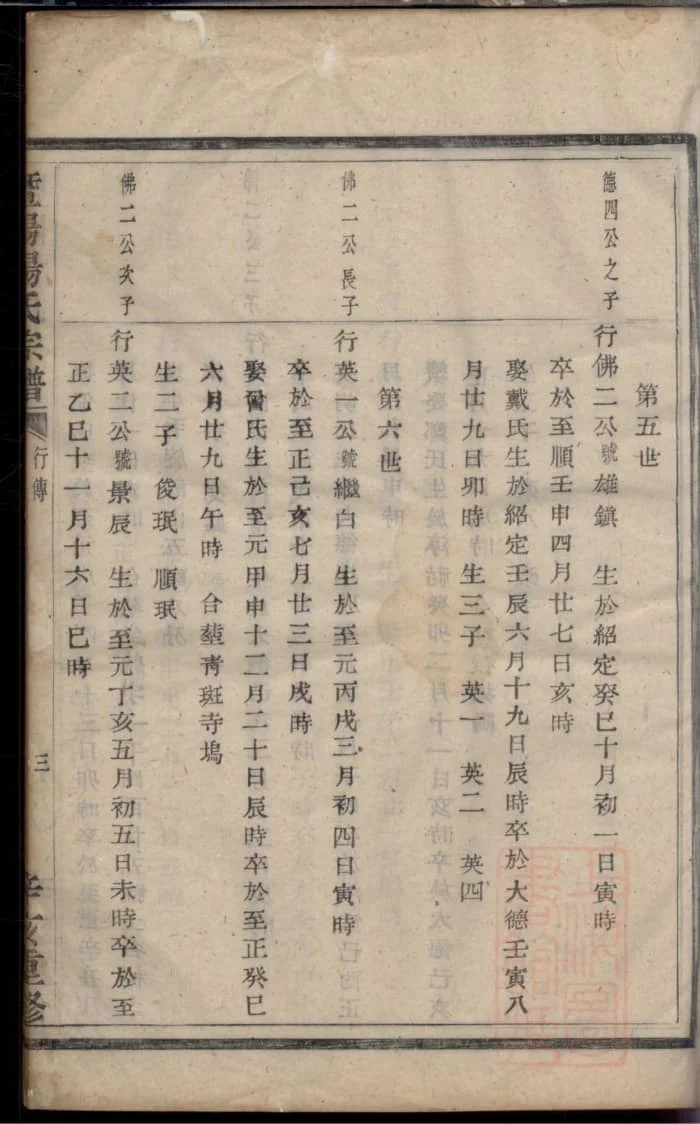 第五世
德四公之子
行佛二公號雄鎮　生於紹定癸巳十月初一日寅時
卒於至順壬申四月廿七日亥時
娶戴氏生於紹定壬辰六月十九日辰時卒於大德壬寅八
月廿九日卯時　生三子　英一　英二　英四
第六世
佛二公長子
行英一公號繼白　生於至元丙戌三月初四日寅時
卒於至正己亥七月廿三日戌時
娶曾氏生於至元甲申十二月二十日辰時卒於至正癸巳
六月廿九日午時　合塟青斑寺塢
生二子　俊珉　順珉
佛二公次子
行英二公號景辰　生於至元丁亥五月初五日未時卒於至
正乙巳十一月十六日巳時
暨陽楊氏宗譜
行傳
三
辛亥重修